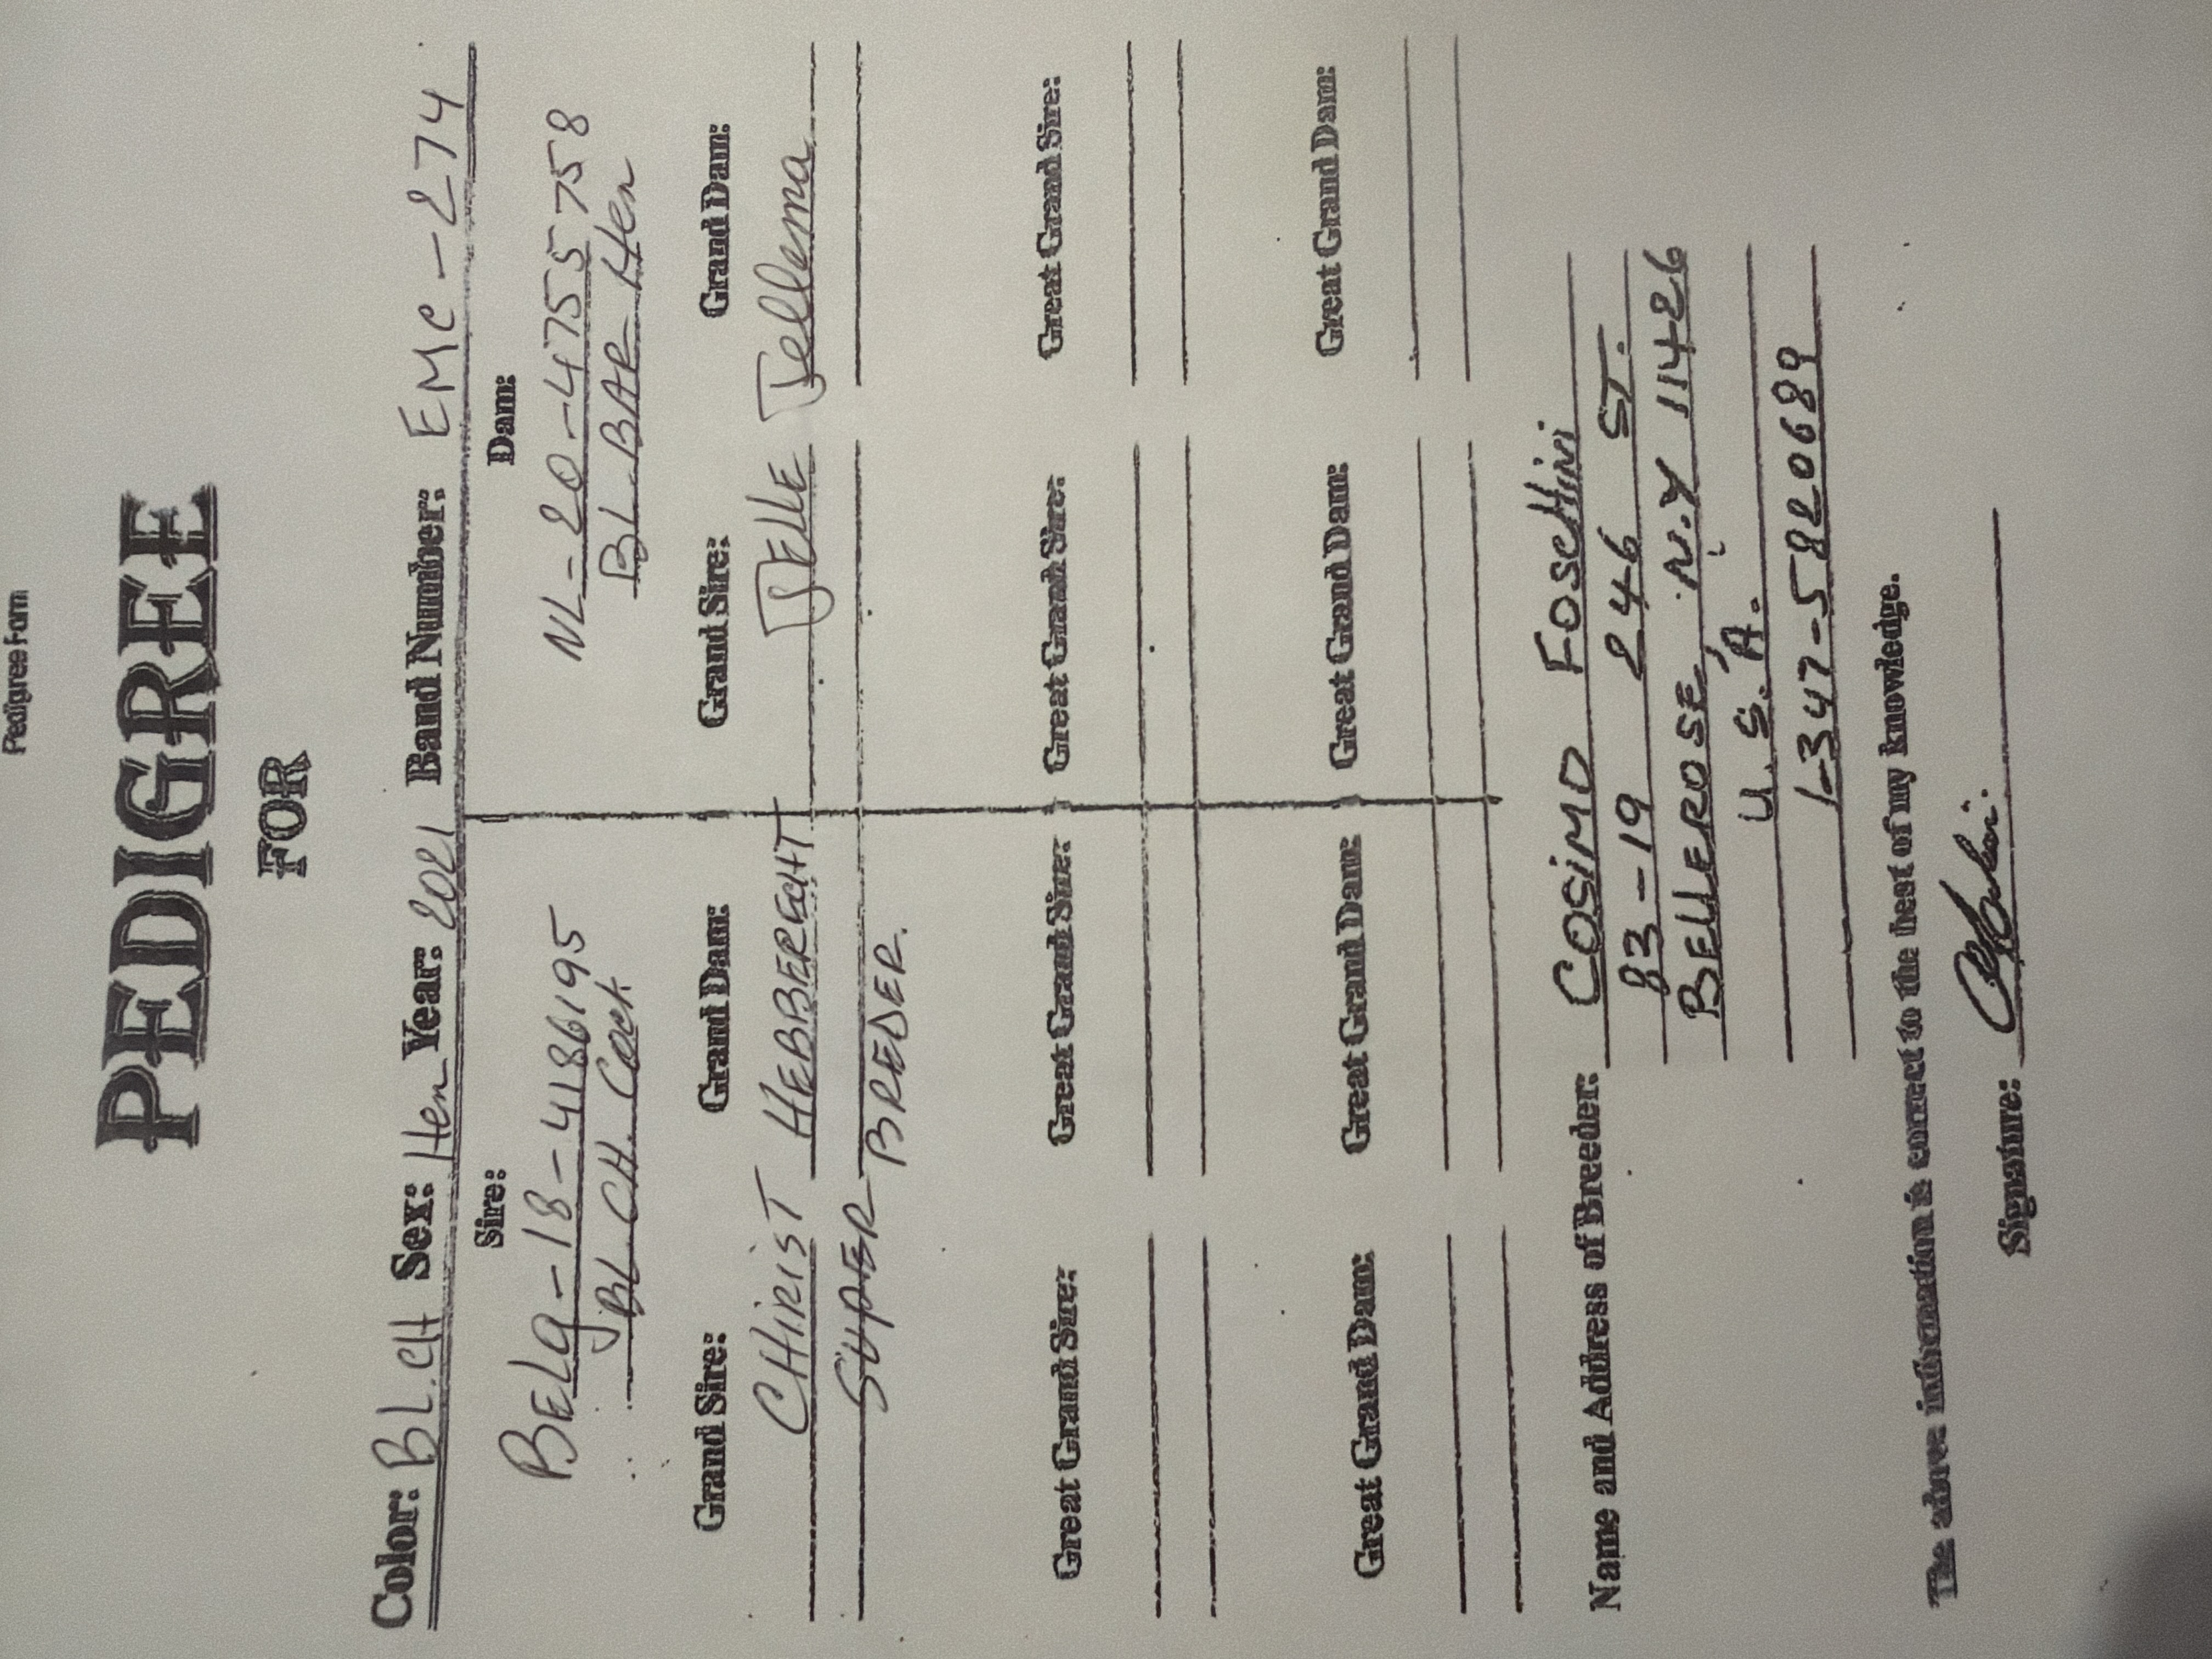 Pedigree Form
PEDIGREE
FOR
Color: BL.CH Sex: Hen Year: 2021 Band Number: EMC-274
Sire: Dam:
BELg-18-4186195 NL-20-4755758
BL CH. Cock BL BAR Hen
Grand Sire: Grand Dam: Grand Sire: Grand Dam:
CHIRIST HEBBERECHT JELLE Jellema
SUPER BREDER.
Great Grand Sire: Great Grand Sire: Great Grand Sire: Great Grand Sire:
Great Grand Dam: Great Grand Dam: Great Grand Dam: Great Grand Dam:
Name and Address of Breeder: COSIMO FOSCHINI
83-19 246 ST.
BELLEROSE, N.Y 11426
U.S.A.
1-347-5820689
The above information is correct to the best of my knowledge.
Signature: